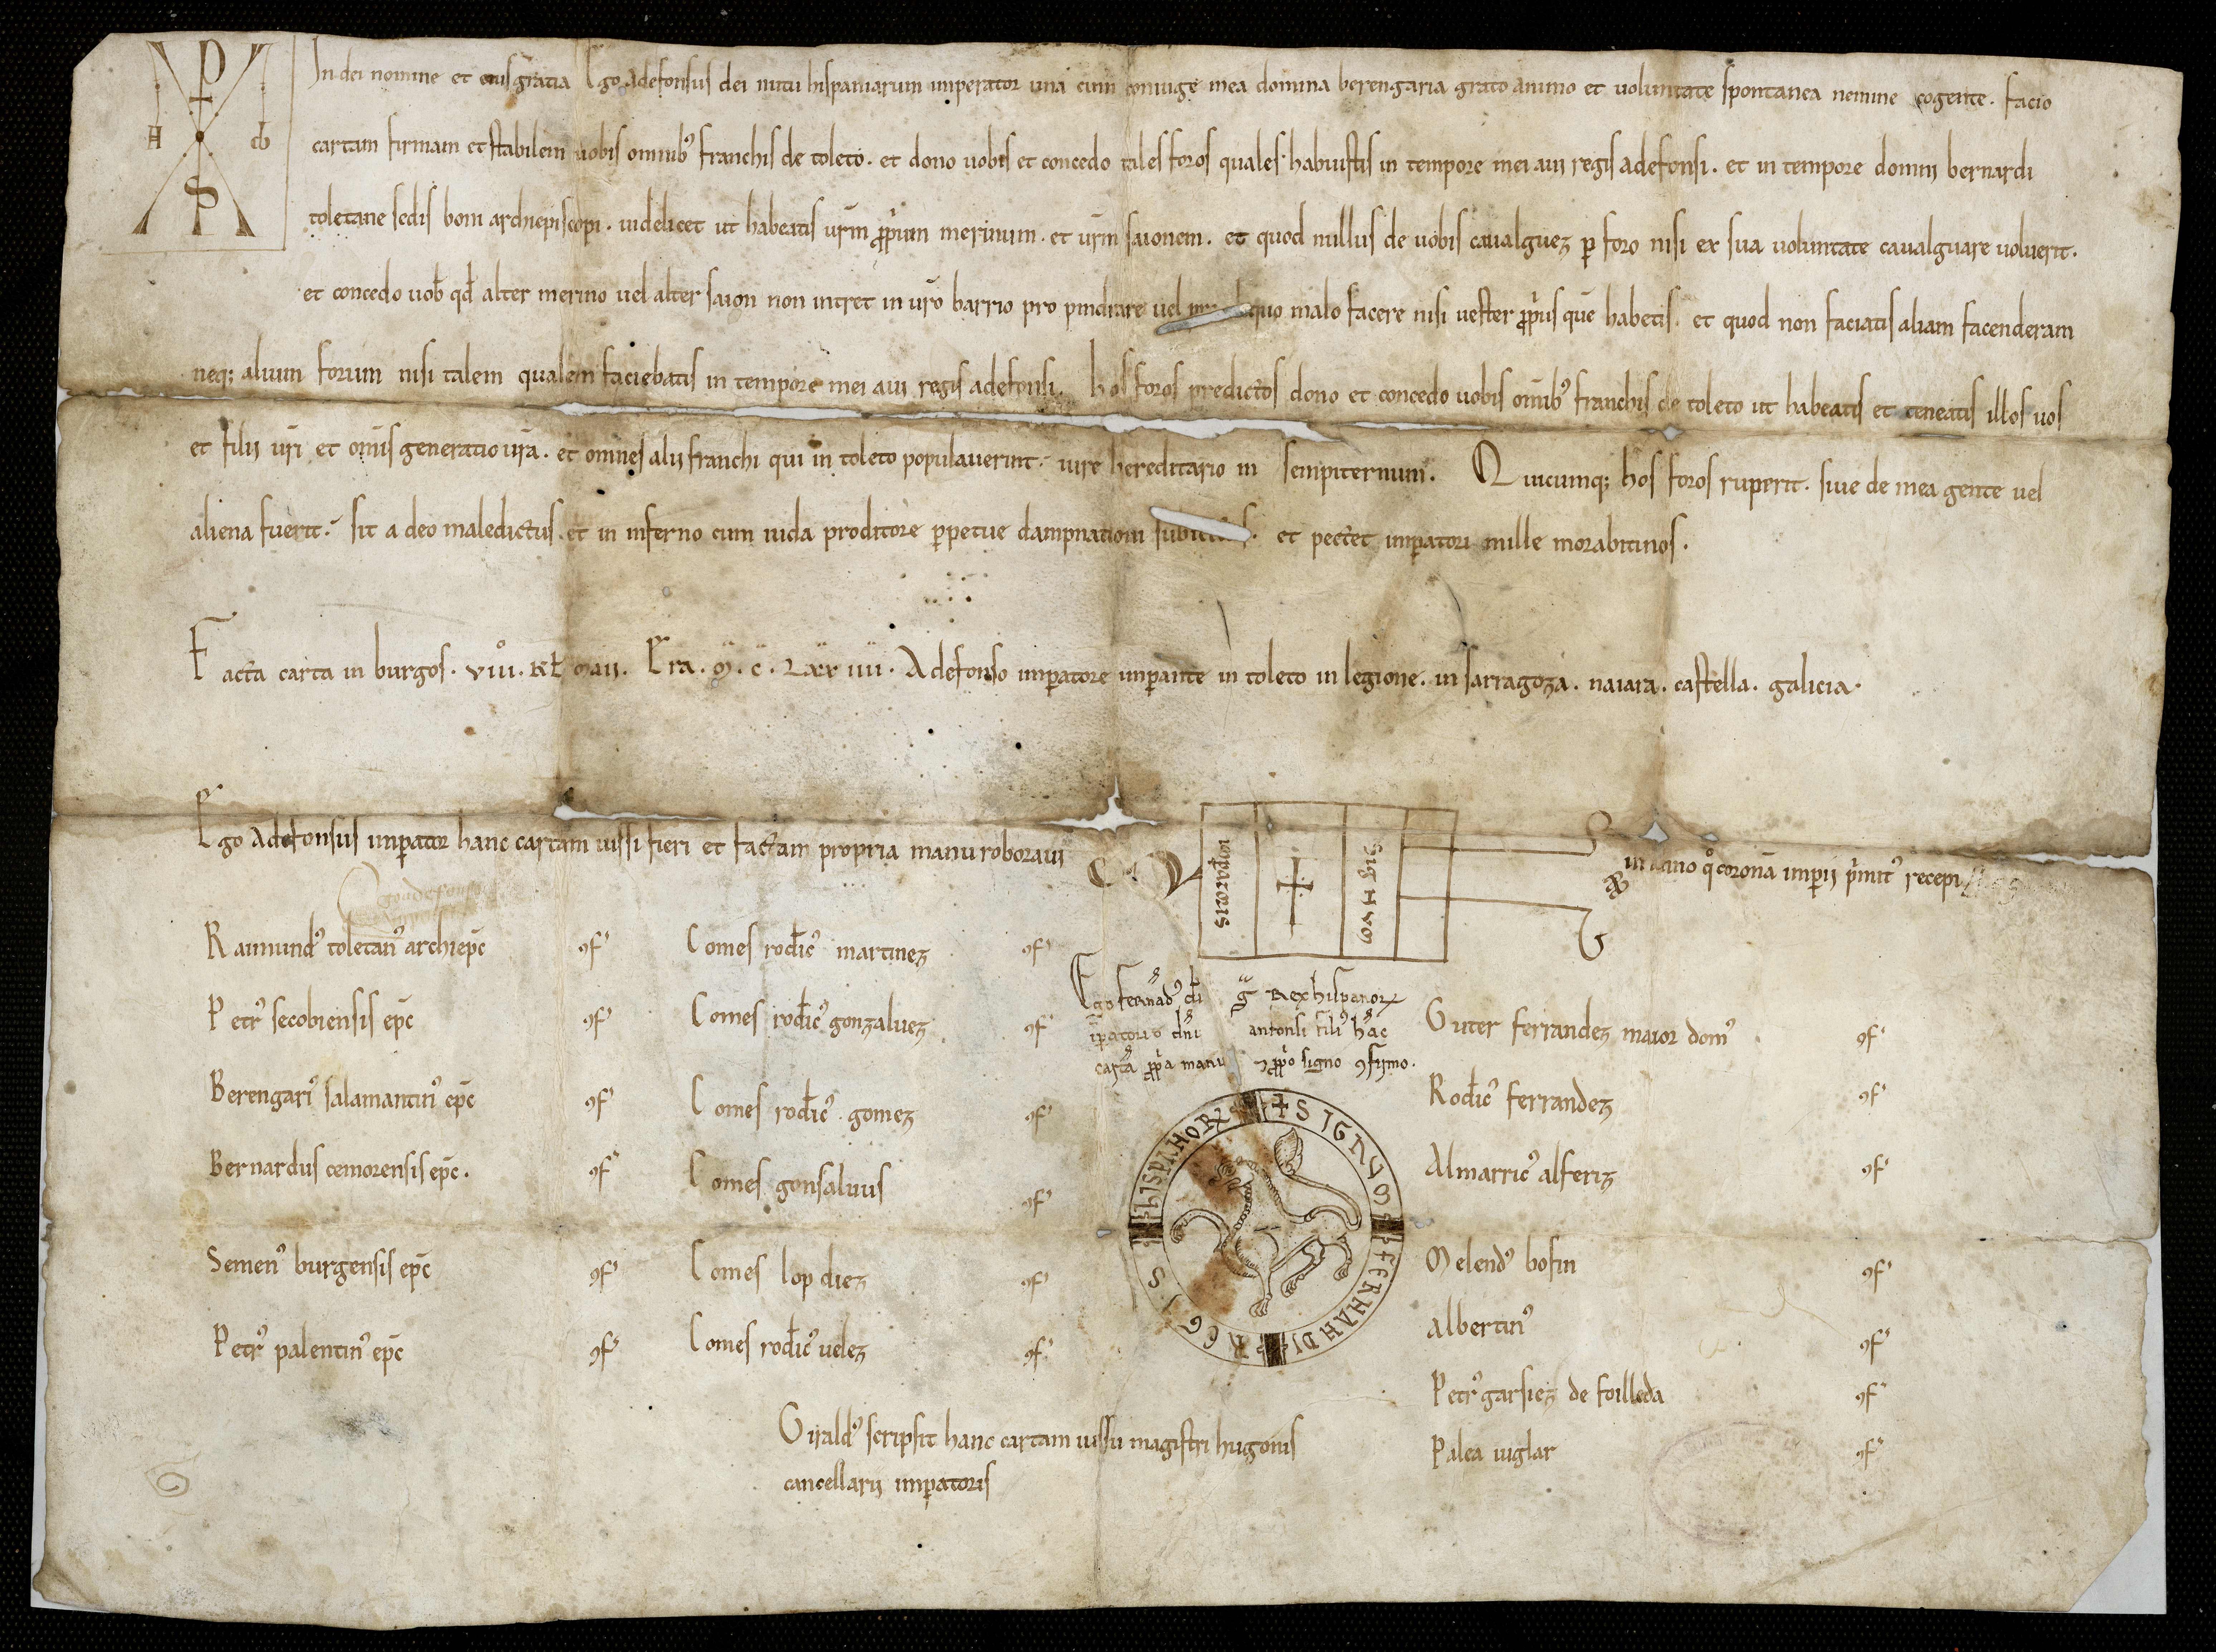 In dei nomine et eius gratia Ego Adefonsus dei nutu hispaniarum imperator una cum coniuge mea domina berengaria grato animo et uoluntate spontanea nemine cogente. facio
cartam firmam et stabilem uobis omnibꝰ franchis de toleto. et dono uobis et concedo tales foros quales habuistis in tempore mei aui regis adefonsi. et in tempore domni bernardi
toletane sedis boni archiepiscopi. uidelicet ut habeatis ur̄m ꝓprium merinum. et ur̄m saionem. et quod nullus de uobis caualguez ꝑ foro nisi ex sua uoluntate caualguare uoluerit.
et concedo uob̄ qd̄ alter merino uel alter saion non intret in ur̄o barrio pro pindrare uel quo malo facere nisi uester ꝓprius quē habetis. et quod non faciatis aliam facenderam
neq; alium forum nisi talem qualem faciebatis in tempore mei aui regis adefonsi. hos foros predictos dono et concedo uobis om̄ibꝰ franchis de toleto ut habeatis et teneatis illos uos
et filij ur̄i et om̄is generatio ur̄a. et omnes alij franchi qui in toleto populauerint. iure hereditario in sempiternum. Quicumq; hos foros ruperit. siue de mea gente uel
aliena fuerit. sit a deo maledictus. et in inferno cum iuda proditore ꝑpetue dampnationi et pectet imꝑatori mille morabitinos.
Facta carta in burgos. viiiº. kl̄ maii. Era. M. C. Lxx iiii. Adefonso imꝑatore imꝑante in toleto in legione. in sarragoza. naiara. castella. galicia.
Ego Adefonsus imꝑator hanc cartam iussi fieri et factam propria manu roboraui
in anno qͦ coronā imꝑij pͥmitꝰ recepi
imꝑatoris
signum
Raimundꝰ toletanꝰ archiepc̄ ꝯfͬ
Petrꝰ secobiensis epc̄ ꝯfͬ
Berengariꝰ salamantinꝰ epc̄ ꝯfͬ
Bernardus cemorensis epc̄. ꝯfͬ
Semenꝰ burgensis epc̄ ꝯfͬ
Petrꝰ palentinꝰ epc̄ ꝯfͬ
Comes rod̄icꝰ martinez ꝯfͬ
Comes rod̄icꝰ gonzaluez ꝯfͬ
Comes rod̄icꝰ gomez ꝯfͬ
Comes gonsaluus ꝯfͬ
Comes lop diez ꝯfͬ
Comes rod̄icꝰ uelez ꝯfͬ
Ego fernādꝰ dī gͣ Rex hispanoꝝ
īꝑatoris dn̄i anfonsi filiꝰ hāc
cartā ꝓpͥa manu ꝓpͥo signo ꝯfirmo.
+ SIGNUM FERNANDI REGIS HISPANORꝜ
Guter ferrandez maior domꝰ ꝯfͬ
Rod̄icꝰ ferrandez ꝯfͬ
Almarricꝰ alferiz ꝯfͬ
Melendꝰ bofin ꝯfͬ
Albertinꝰ ꝯfͬ
Petrꝰ garsiez de foilleda ꝯfͬ
Palea iuglar ꝯfͬ
Giraldꝰ scripsit hanc cartam iussu magistri hugonis
cancellarij imꝑatoris